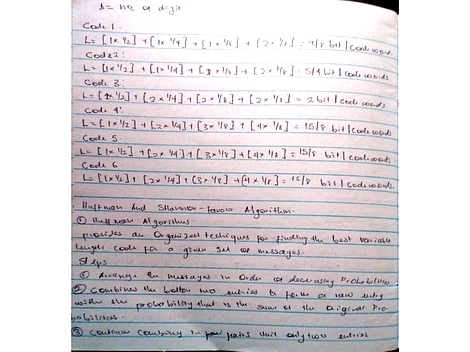 S = no of digit
Code 1:
L = [1 x 1/2] + [1 x 1/4] + [1 x 1/8] + [2 x 1/8] = 9/8 bit | codeword
Code 2:
L = [1 x 1/2] + [1 x 1/4] + [2 x 1/8] + [2 x 1/8] = 5/4 bit | codewords
Code 3:
L = [2 x 1/2] + [2 x 1/4] + [2 x 1/8] + [2 x 1/8] = 2 bit | codewords
Code 4:
L = [1 x 1/2] + [2 x 1/4] + [3 x 1/8] + [4 x 1/8] = 15/8 bit | codewords
Code 5
L = [1 x 1/2] + [2 x 1/4] + [3 x 1/8] + [4 x 1/8] = 15/8 bit | codewords
Code 6
L = [1 x 1/2] + [2 x 1/4] + [3 x 1/8] + [4 x 1/8] = 15/8 bit | codewords
Huffman And Shannon-Fanon Algorithm.
① Huffman Algorithms
provides an Organized techniques for finding the best variable
length code for a given set of messages.
Steps
① Arrange the messages in Order of decreasing Probabilities
② Combines the bottom two entries to form a new entry
with the probability that is the sum of the Original Pro-
babilities.
③ Continue combining in pairs until only two entries